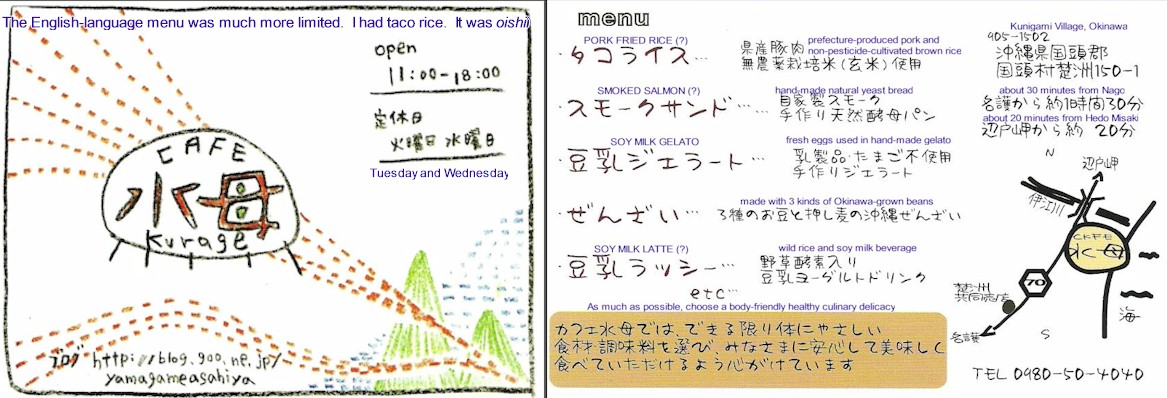 The English-language menu was much more limited. I had taco rice. It was oishii
open
11:00-18:00
定休日
火曜日 水曜日
Tuesday and Wednesday
CAFE
水母
kurage
ブログ http://blog.goo.ne.jp/
yamagameasahiya
menu
PORK FRIED RICE (?)
・タコライス…
prefecture-produced pork and
県産豚肉
non-pesticide-cultivated brown rice
無農薬栽培米(玄米)使用
SMOKED SALMON (?)
・スモークサンド…
hand-made natural yeast bread
自家製スモーク
手作り天然酵母パン
SOY MILK GELATO
・豆乳ジェラート…
fresh eggs used in hand-made gelato
乳製品・たまご不使用
手作りジェラート
made with 3 kinds of Okinawa-grown beans
・ぜんざい…
3種のお豆と押し麦の沖縄ぜんざい
SOY MILK LATTE (?)
・豆乳ラッシー…
wild rice and soy milk beverage
野草酵素入り
豆乳ヨーグルトドリンク
etc…
As much as possible, choose a body-friendly healthy culinary delicacy
カフェ水母では、できる限り体にやさしい
食材・調味料を選び、みなさまに安心して美味しく
食べていただけるよう心がけています
Kunigami Village, Okinawa
905-1502
沖縄県国頭郡
国頭村楚洲150-1
about 30 minutes from Nago
名護から約1時間30分
about 20 minutes from Hedo Misaki
辺戸岬から約 20分
N
辺戸岬
伊江川
CAFE
水母
70
楚洲
共同売店
海
名護
S
TEL 0980-50-4040